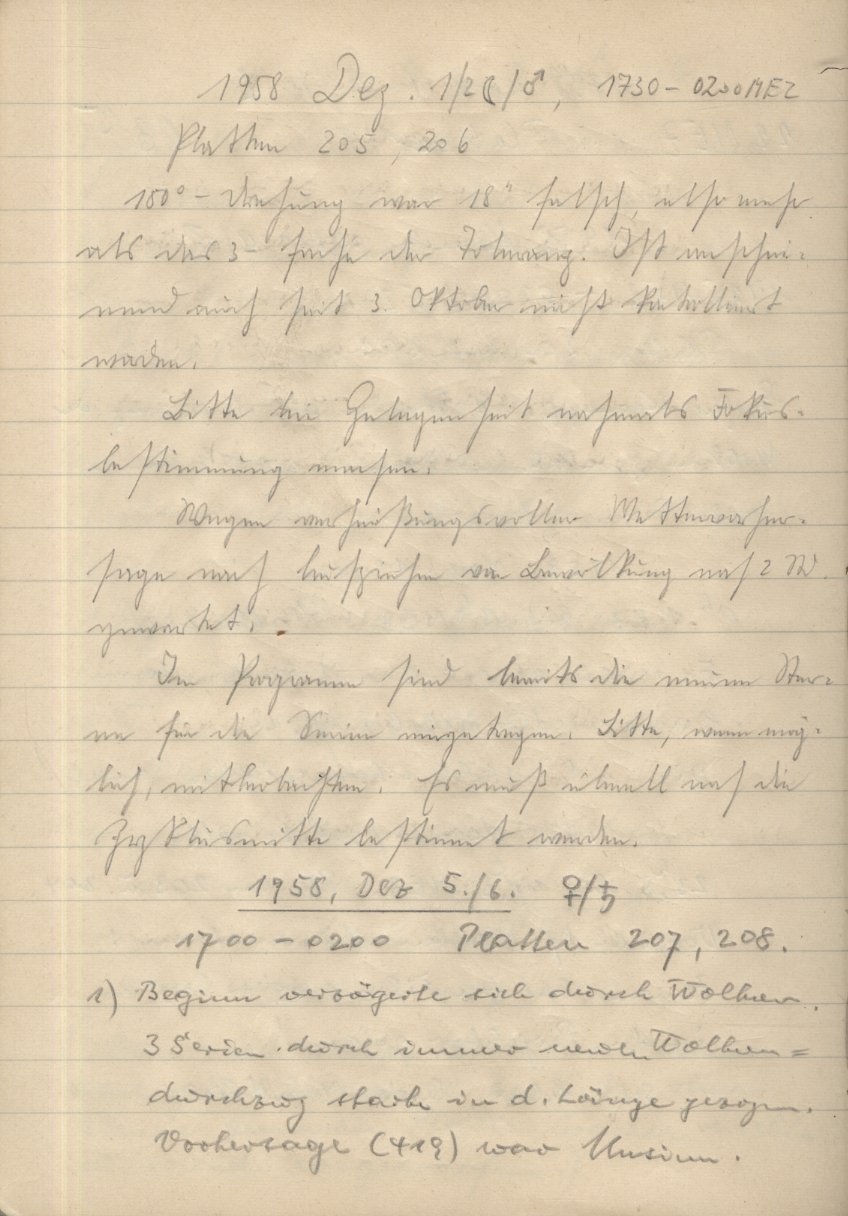 1958 Dez. 1/2 ☾/♂, 1730 – 0200 MEZ
Platten 205, 206
180° – Drehung war 18" falsch, also mehr
als das 3-fache der Toleranz. Ist anschei-
nend auch seit 3. Oktober nicht kontrolliert
worden.
Bitte bei Gelegenheit nochmals Fokus-
bestimmung machen.
Wegen verheißungsvoller Wettervorher-
sage nach Aufziehen von Bewölkung noch 2
gewartet.
Im Programm sind bereits die neuen Ster-
ne für die Serien eingetragen. Bitte, wenn mög-
lich, mitbeobachten. Es muß überall noch die
Zyklusmitte bestimmt werden.
1958, Dez 5./6. ♀/♄
1700 – 0200 Platten 207, 208.
1) Beginn verzögerte sich durch Wolken.
3 Serien durch immer neuen Wolken=
durchzug stark in d. Länge gezogen.
Vorhersage (419) war Unsinn.